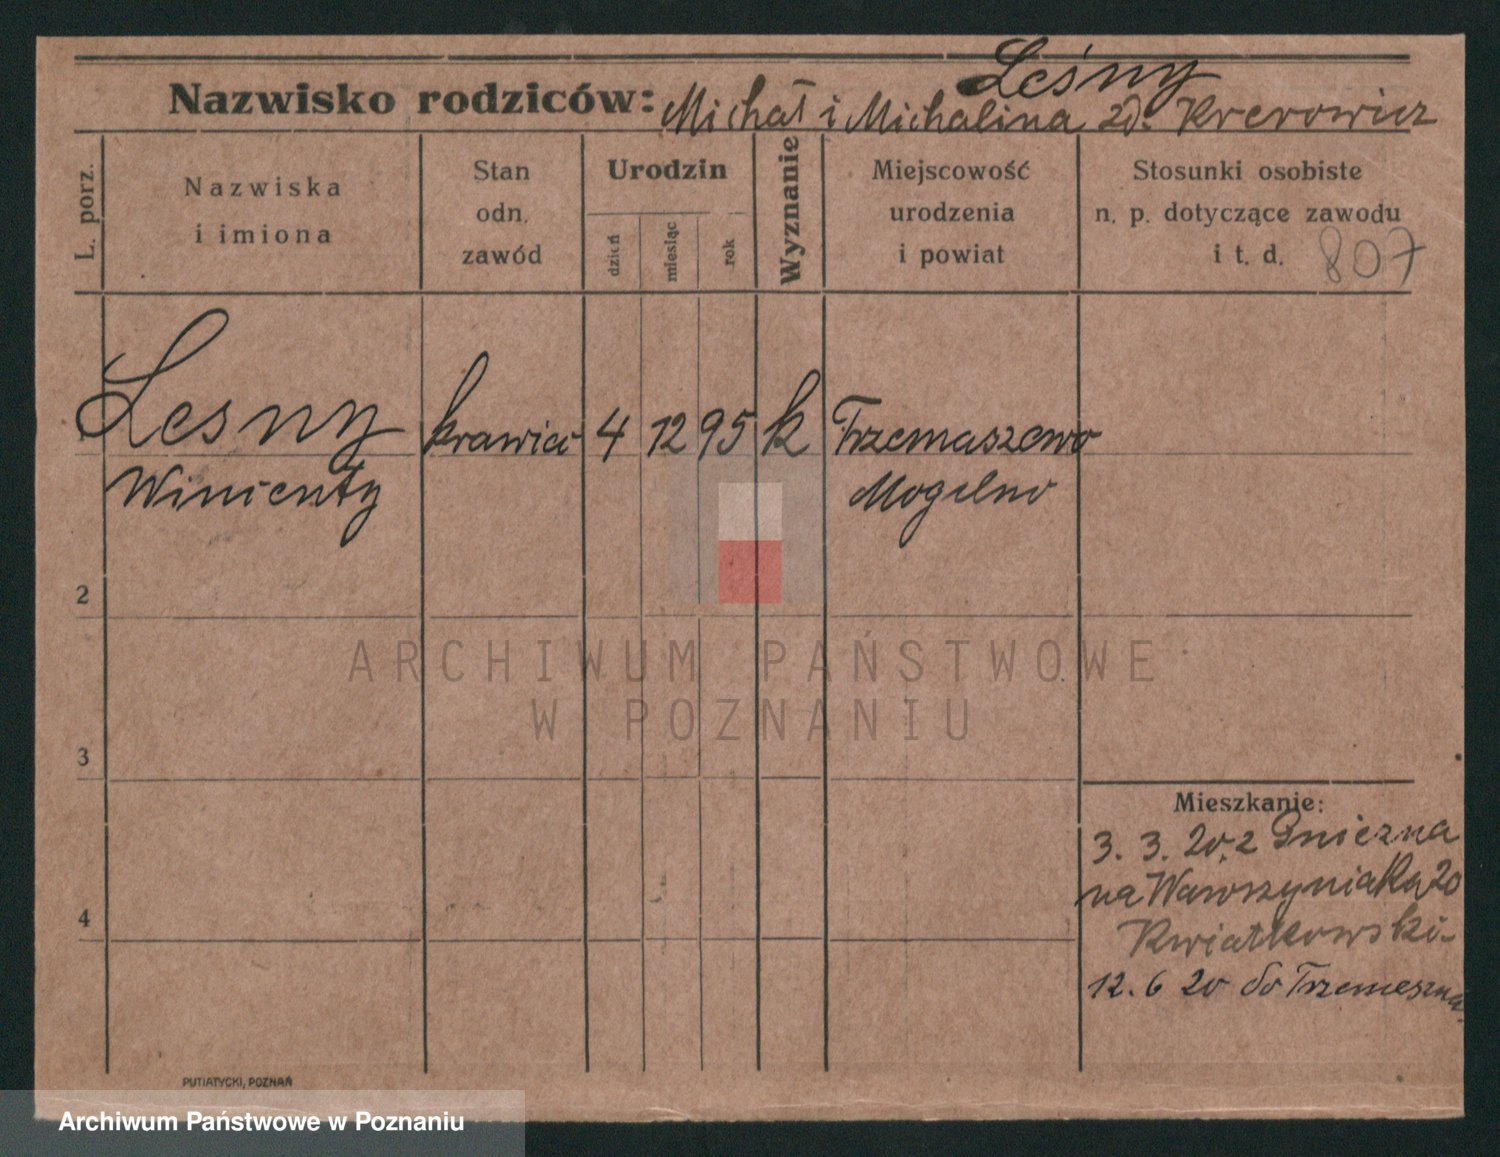 Leśny
Nazwisko rodziców: Michał i Michalina zd. Krerowicz
L. porz.
Nazwiska
i imiona
Stan
odn.
zawód
Urodzin
dzień
miesiąc
rok
Wyznanie
Miejscowość
urodzenia
i powiat
Stosunki osobiste
n. p. dotyczące zawodu
i t. d. 807
Lesny krawiec 4 12 95 k Trzemaszewo
Winienty Mogilno
2
3
4
Mieszkanie:
3. 3. 20. z Gniezna
na Wawrzyniaka 20
Kwiatkowski
12. 6 20 do Trzemeszna
ARCHIWUM PAŃSTWOWE
W POZNANIU
PUTIATYCKI, POZNAŃ
Archiwum Państwowe w Poznaniu